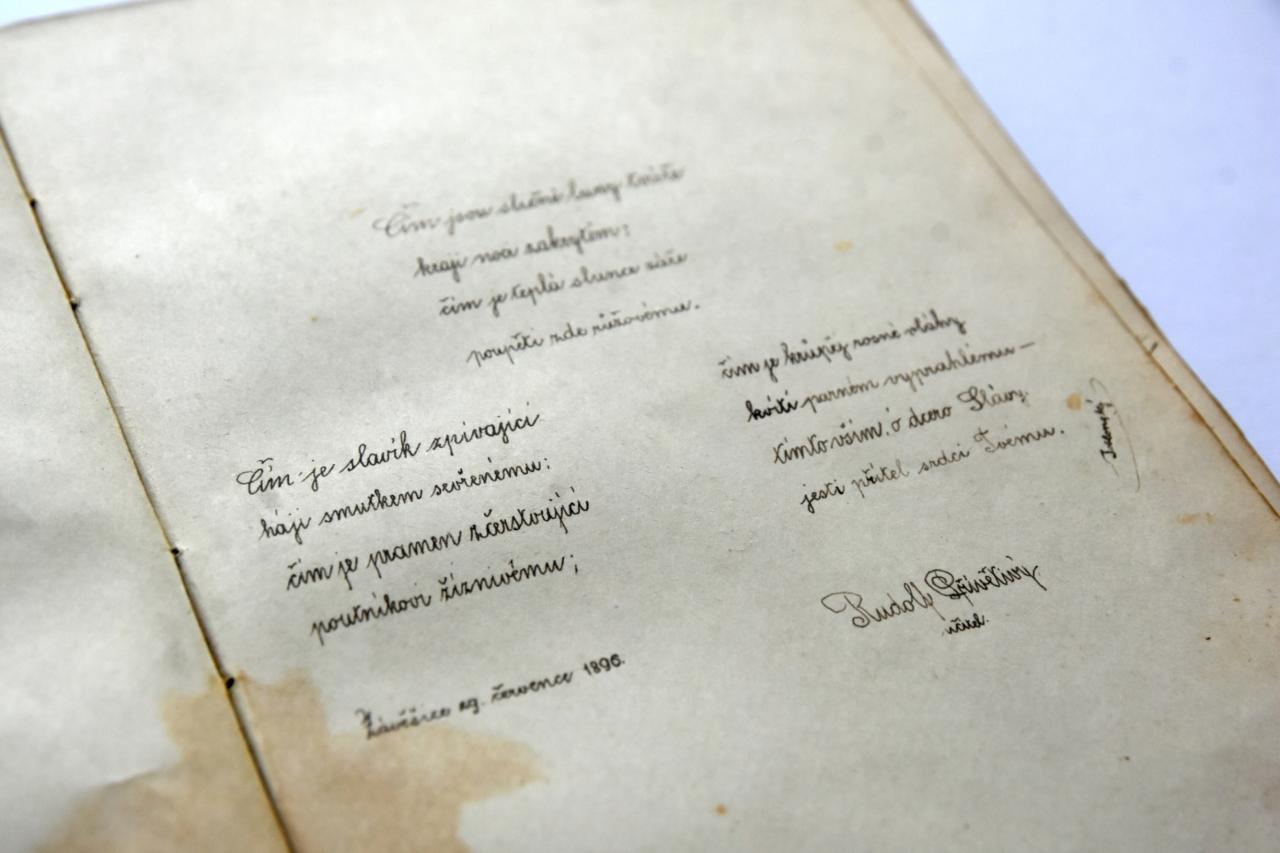 Čím jsou sličné luny tváře
kraji nocí zakrytém:
čím je teplá slunce záře
poupěti zde růžovému.
Čím je slavík zpívající
háji smutkem sevřenému:
čím je pramen zčerstvující
poutníkovi žíznivému;
čím je krůpěj rosné vláhy
kvítí parném vyprahlému —
tímto vším, ó dcero Slávy,
jesti přítel srdci Tvému.
Rudolf Přívětivý
učitel.
července 1896.